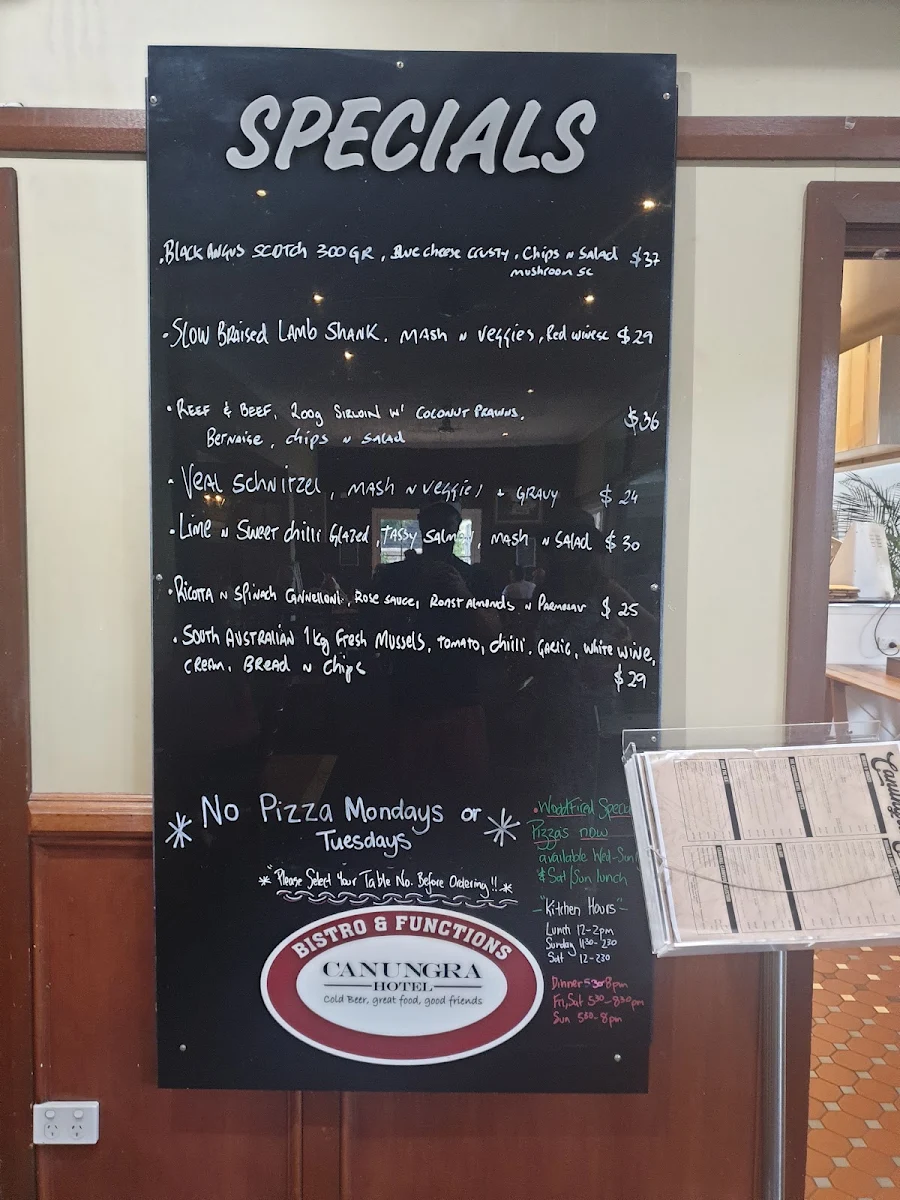 SPECIALS
• BLACK ANGUS SCOTCH 300GR, Blue cheese CRUSTY, Chips N Salad $37
mushroom sc
• Slow Braised Lamb Shank, MASH N Veggies, Red wine sc $29
• REEF & BEEF, 200g SIRLOIN W' COCONUT PRAWNS, $36
Bernaise, chips N SALAD
• Veal Schnitzel, MASH N Veggies + GRAVY $24
• Lime N Sweet chilli Glazed, TASSY Salmon, MASH N SALAD $30
• Ricotta N Spinach Cannelloni, Rose sauce, Roast Almonds N Parmesan $25
• South Australian 1kg Fresh Mussels, Tomato, chilli, Garlic, white wine,
cream, Bread N Chips $29
* No Pizza Mondays or *
Tuesdays
* "Please Select Your Table No. Before Ordering!! *
• WoodFired
Pizza's now
available Wed-Sun
& Sat/Sun lunch
"Kitchen Hours"
Lunch 12-2pm
Sunday 1130-230
Sat 12-230
Dinner 530-8pm
Fri,Sat 530-830pm
Sun 530-8pm
BISTRO & FUNCTIONS
CANUNGRA
HOTEL
Cold Beer, great food, good friends